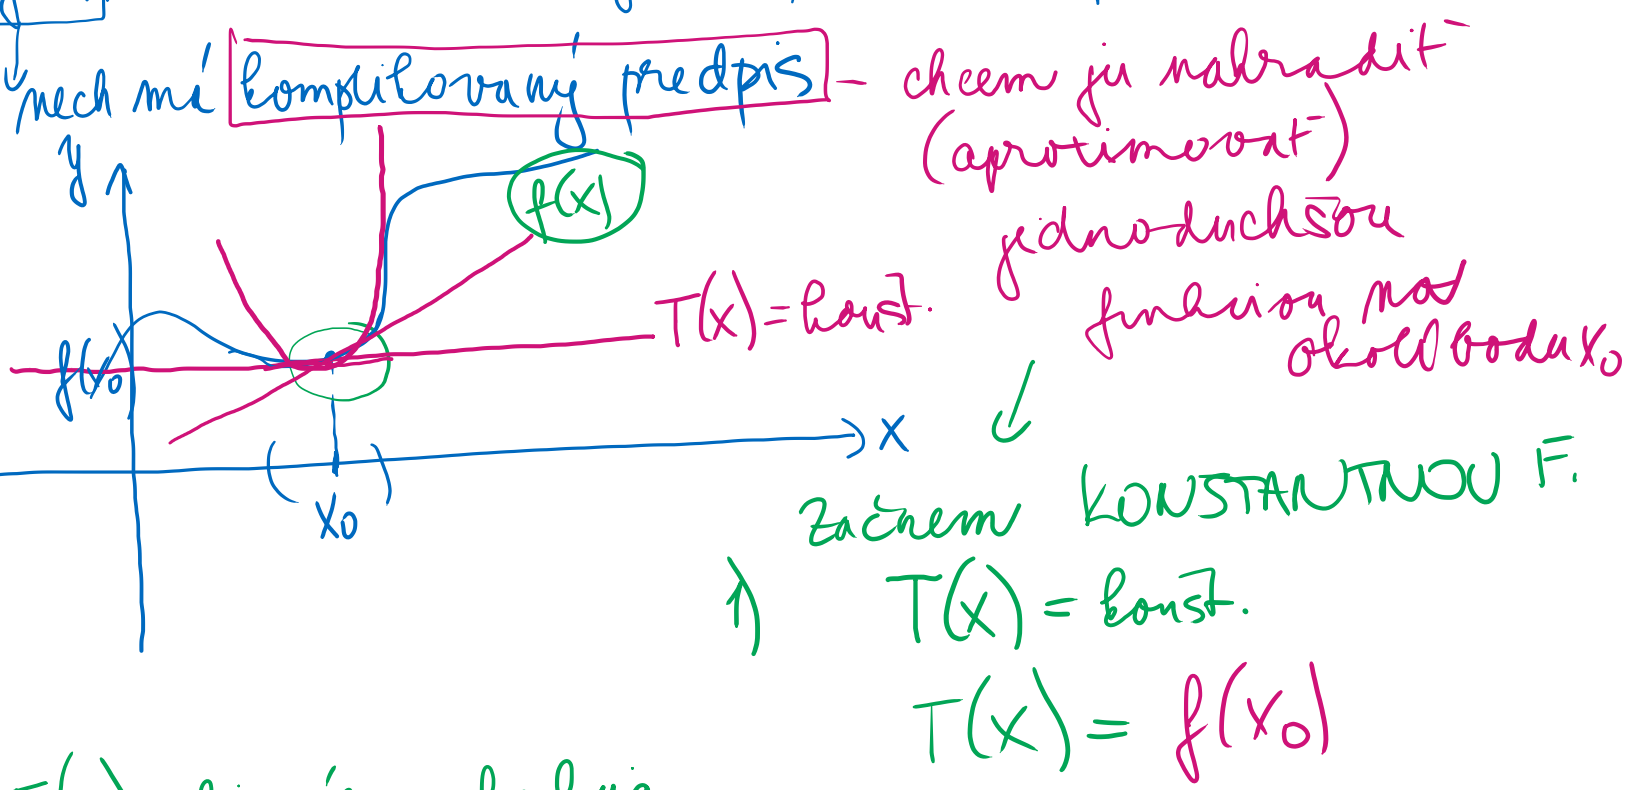 nech má komplikovaný predpis - chcem ju nahradiť
(aproximovať)
jednoduchšou
funkciou na
okolí bodu x₀
y
f(x)
T(x) = konšt.
f(x₀
x
( )
x₀
začnem KONŠTANTNOU F.
1) T(x) = konšt.
T(x) = f(x₀)